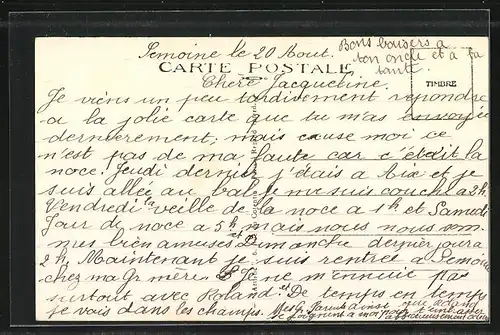 Semoine le 20 Aout.
Bons baisers a
ton oncle et à ta
tante.
CARTE POSTALE
TIMBRE
Chère Jacqueline.
Je viens un peu tardivement repondre
a la jolie carte que tu m'as envoyée
dernierement; mais cause moi ce
n'est pas de ma faute car c'était la
noce. Jeudi dernier j'étais a et je
suis allée au bal je me suis couché a 2h.
Vendredi la veille de la noce a 1h et Samedi
Jour de noce a 5h mais nous nous som-
mes bien amusés. et Dimanche dernier jour a
2h. Maintenant je suis rentrée a Semoine
chez ma Gr mère. Je ne m'ennuie pas
surtout avec Roland. et De temps en temps
je vais dans les champs. Mes G. Parents ainsi que
se joignent a moi pour t'embrasser
affectueusement